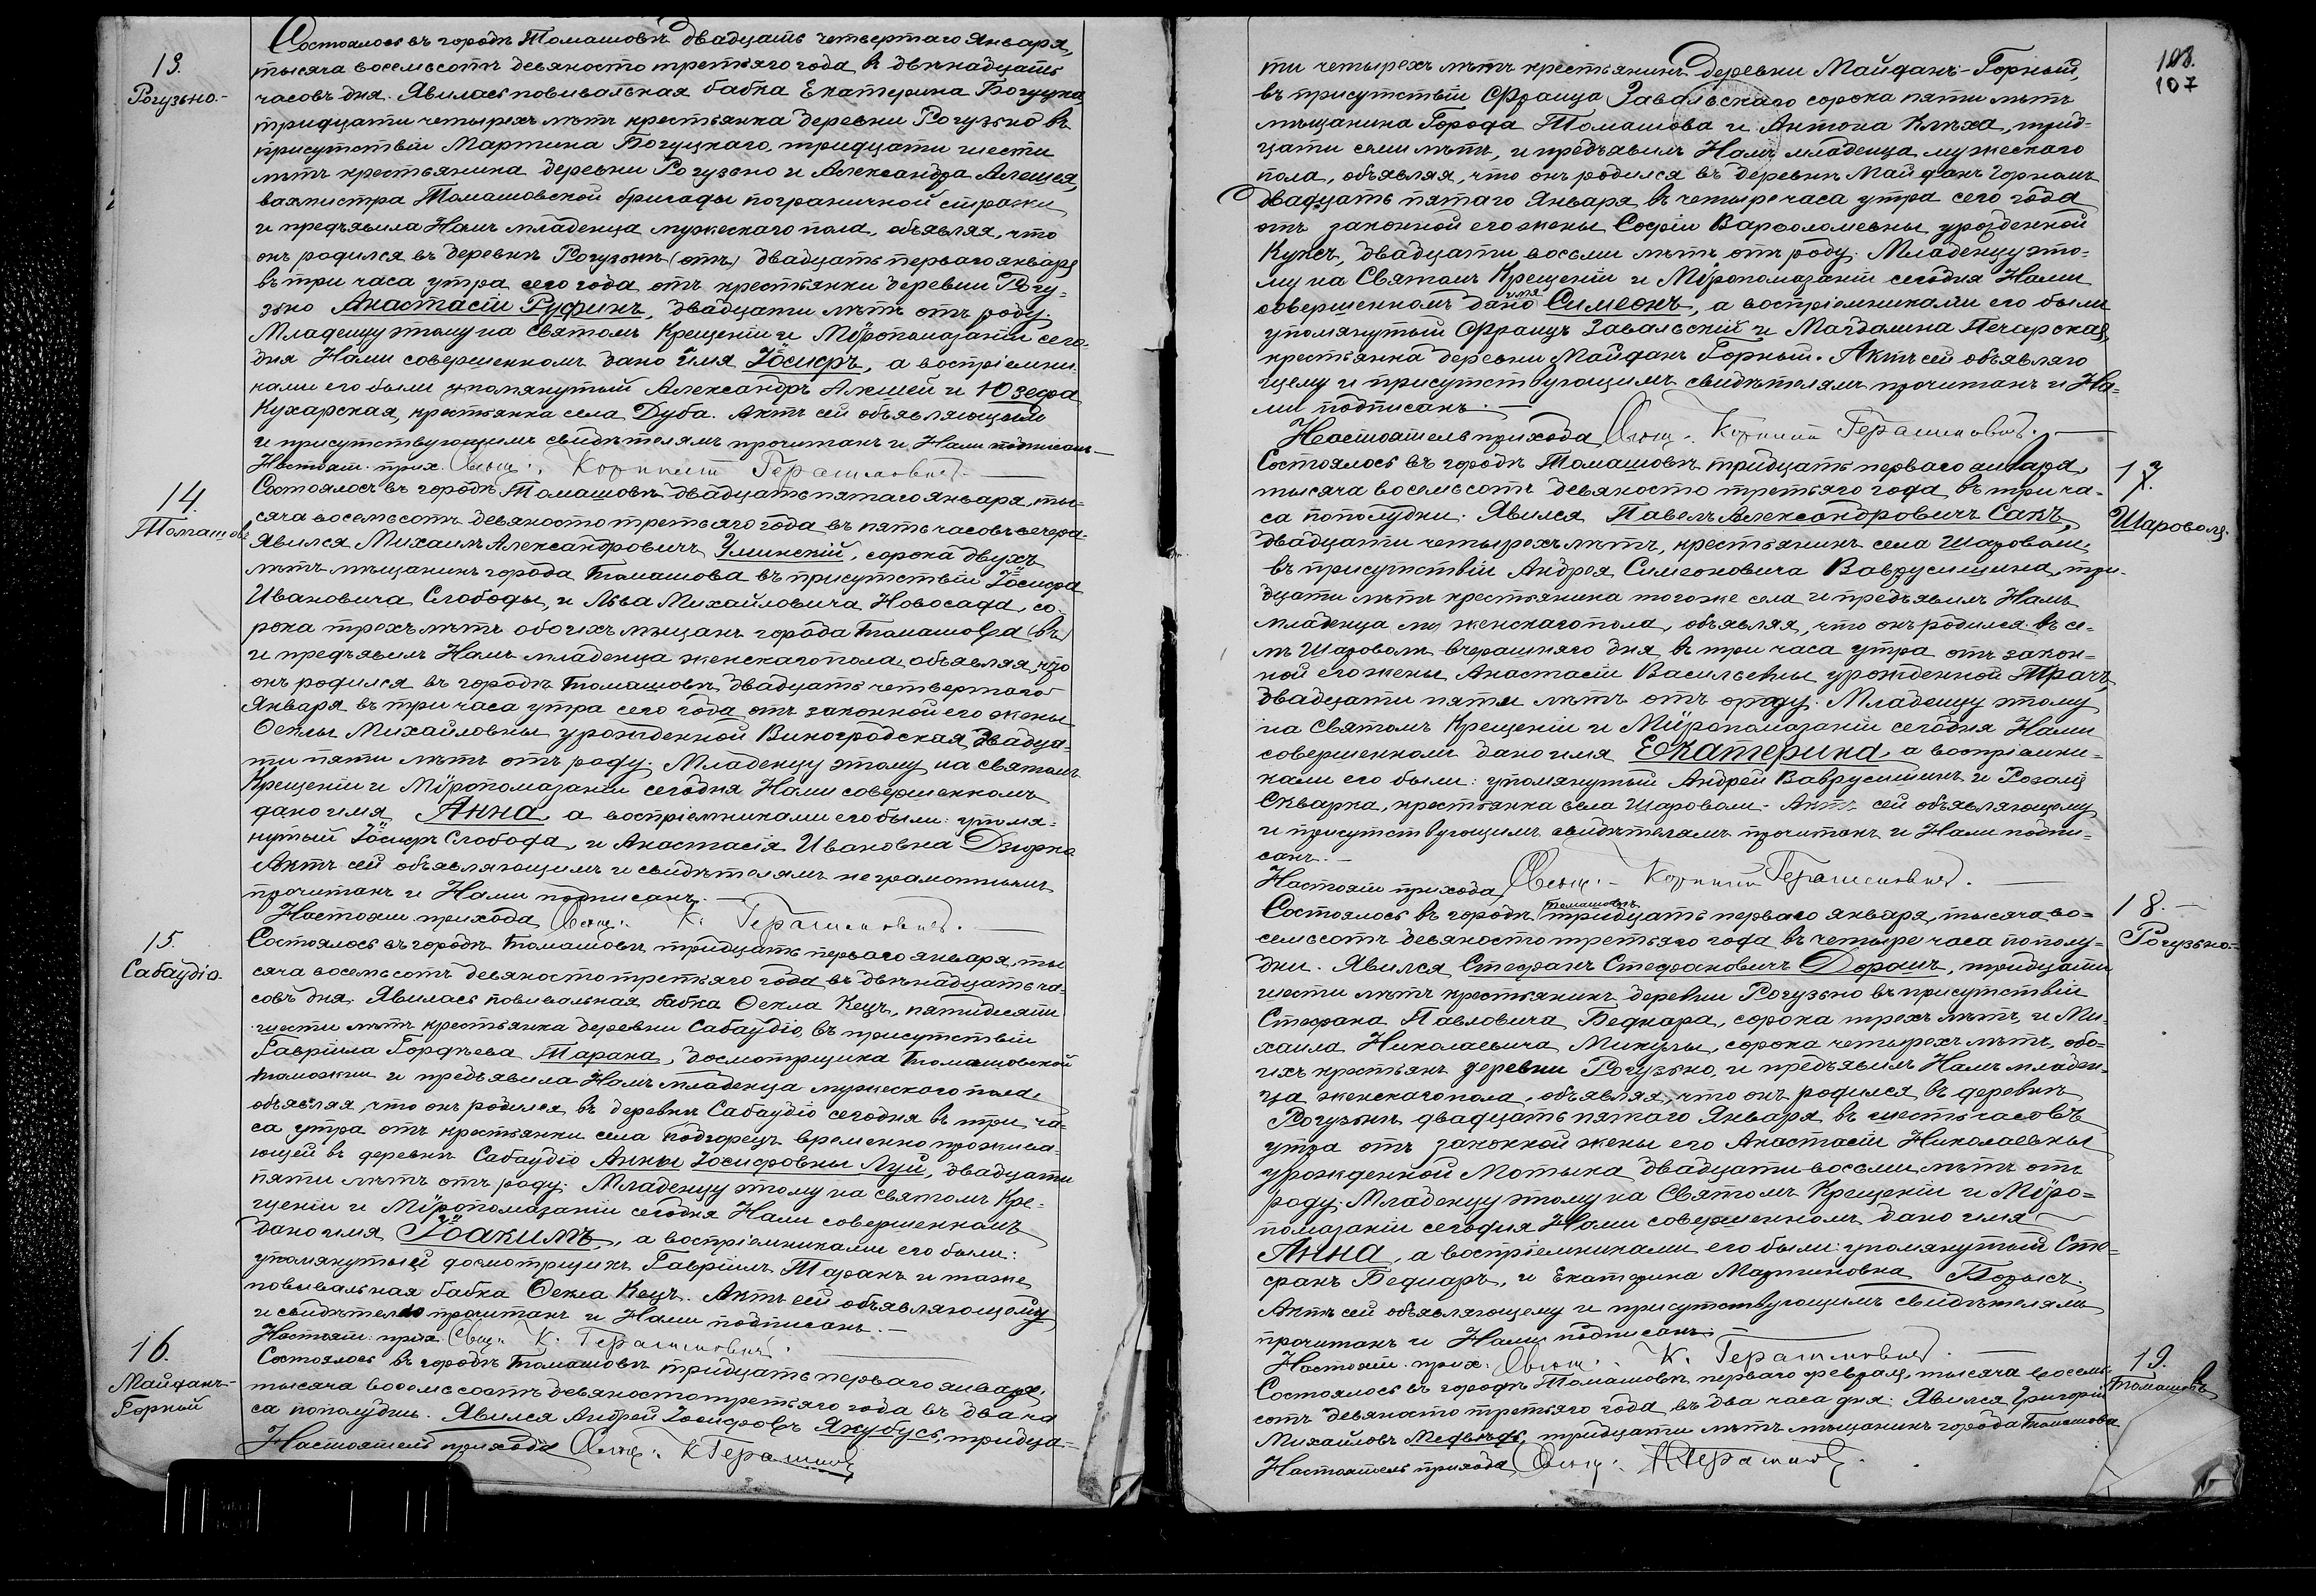 13.
Рогузьно.-
Состоялось въ городѣ Томашовѣ двадцать четвертаго Января,
тысяча восемьсотъ девяносто третьяго года в двѣнадцать
часовъ дня. Явилась повивальная бабка Екатерина Богуцка,
тридцати четырехъ лѣтъ крестьянка деревни Рогузьно въ
присутствіи Мартина Богуцкаго, тридцати шести
лѣтъ крестьянина деревни Рогузьно и Александра Алешея,
вахмистра Томашовской бригады пограничной стражи
и предъявила Намъ младенца мужескаго пола, объявляя, что
онъ родился въ деревнѣ Рогузьнѣ (отъ) двадцать перваго января
въ три часа утра сего года отъ крестьянки деревни Рогу-
зьно Анастасіи Руфинъ, двадцати лѣтъ отъ роду.
Младенцу этому на Святомъ Крещеніи и Мѵропомазаніи сего-
дня Нами совершенномъ дано имя Іосифъ, а воспріемни-
ками его были упомянутый Александръ Алешей и Юзефа
Кухарская, крестьянка села Дуба. Актъ сей объявляющей
и присутствующимъ свидѣтелямъ прочитанъ и Нами подписанъ.
Настоят. прих. Свящ. Корнилій Герасимовичъ.
14.
Томашовъ
Состоялось въ городѣ Томашовѣ двадцать пятаго января, ты-
сяча восемьсотъ девяносто третьяго года въ пять часовъ вечера.
Явился Михаилъ Александровичъ Уминскій, сорока двухъ
лѣтъ мѣщанинъ города Томашова въ присутствіи Іосифа
Ивановича Слободы, и Льва Михайловича Новосада, со-
рока трехъ лѣтъ обоихъ мѣщанъ города Томашова (въ)
и предъявилъ Намъ младенца женскаго пола, объявляя, что
онъ родился въ городѣ Томашовѣ двадцать четвертаго
Января въ три часа утра сего года отъ законной его жены
Ѳеклы Михайловны урожденной Виноградская, двадца-
ти пяти лѣтъ отъ роду. Младенцу этому на Святомъ
Крещеніи и Мѵропомазаніи сегодня Нами совершенномъ
дано имя Анна, а воспріемниками его были: упомя-
нутый Іосифъ Слобода, и Анастасія Ивановна Дзюрка
Актъ сей объявляющимъ и свидѣтелямъ неграмотнымъ
прочитанъ и Нами подписанъ.
Настоят прихода Свящ. К. Герасимовичъ.
15.
Сабаудіо.
Состоялось въ городѣ Томашовѣ тридцать перваго января, ты
сяча восемьсотъ девяносто третьяго года въ двѣнадцать ча-
совъ дня. Явилась повивальная бабка Ѳекла Кецъ, пятидесяти
шести лѣтъ крестьянка деревни Сабаудіо, въ присутствіи
Гавріила Гордѣева Тарана, досмотрщика Томашовской
таможни и предъявила Намъ младенца мужескаго пола,
объявляя, что онъ родился въ деревнѣ Сабаудіо сегодня въ три ча-
са утра отъ крестьянки села Подгорецъ временно прожива-
ющей въ деревнѣ Сабаудіо Анны Іосифовны Луй, двадцати
пяти лѣтъ отъ роду. Младенцу этому на Святомъ Кре-
щеніи и Мѵропомазаніи сегодня Нами совершенномъ
дано имя Іоакимъ, а воспріемниками его были:
упомянутый досмотрщикъ Гавріилъ Таранъ и таже
повивальная бабка Ѳекла Кецъ. Актъ сей объявляющему
и свидѣтелю прочитанъ и Нами подписанъ.
Настоят. прих. Свящ. К. Герасимовичъ.
16.
Майданъ-
Горный
Состоялось въ городѣ Томашовѣ тридцать перваго января,
тысяча восемьсотъ девяносто третьяго года въ два ча
са пополудни. Явился Андрей Іосифовъ Якубусъ, тридца-
Настоятель прихода Свящ. К Герасимов
108.
107
ти четырехъ лѣтъ крестьянинъ деревни Майданъ-Горный,
въ присутствіи Франца Завальскаго сорока пяти лѣтъ
мѣщанина Города Томашова и Антона Клѣха, трид-
цати семи лѣтъ, и предъявилъ Намъ младенца мужескаго
пола, объявляя, что онъ родился въ деревнѣ Майданъ Горномъ
двадцать пятаго Января въ четыре часа утра сего года
отъ законной его жены Софіи Варфоломевны урожденной
Куксъ, двадцати восьми лѣтъ отъ роду. Младенцу это-
му на Святомъ Крещеніи и Мѵропомазаніи сегодня Нами
совершенномъ дано имя Симеонъ, а воспріемниками его были
упомянутый Францъ Завальскій и Магдалина Печарская,
крестьянка деревни Майданъ Горный. Актъ сей объявляю
щему и присутствующимъ свидѣтелямъ прочитанъ и На-
ми подписанъ.
Настоятель прихода Свящ. Корнилій Герасимовичъ.
17.
Шароволя.
Состоялось въ городѣ Томашовѣ тридцать перваго января
тысяча восемьсотъ девяносто третьяго года въ три ча-
са пополудни. Явился Павелъ Александровичъ Сакъ,
двадцати четырехъ лѣтъ, крестьянинъ села Шароволи,
въ присутствіи Андрея Симеоновича Ваврусишина, три-
дцати лѣтъ крестьянина тогоже села и предъявилъ Намъ
младенца му женскаго пола, объявляя, что онъ родился въ се-
лѣ Шароволѣ вчерашняго дня въ три часа утра отъ закон-
ной его жены Анастасіи Васильевны урожденной Трачъ,
двадцати пяти лѣтъ отъ роду. Младенцу этому
на Святомъ Крещеніи и Мѵропомазаніи сегодня Нами
совершенномъ дано имя Екатерина, а воспріемни-
ками его были: упомянутый Андрей Ваврусишинъ и Розалія
Скварка, крестьянка села Шароволи. Актъ сей объявляющему
и присутствующимъ свидѣтелямъ прочитанъ и Нами подпи-
санъ.
Настоят прихода Свящ. Корнилій Герасимовичъ.
18.
Рогузьно.
Состоялось въ городѣ Томашовѣ тридцать перваго января, тысяча во-
семьсотъ девяносто третьяго года въ четыре часа пополу-
дни. Явился Стефанъ Стефановичъ Дорашъ, тридцати
шести лѣтъ крестьянинъ деревни Рогузьно въ присутствіи
Стефана Павловича Беднара, сорока трехъ лѣтъ, и Ми-
хаила Николаевича Микулы, сорока четырехъ лѣтъ, обо-
ихъ крестьянъ деревни Рогузьно, и предъявилъ Намъ младен-
ца женскаго пола, объявляя, что онъ родился въ деревнѣ
Рогузьнѣ двадцать пятаго Января въ шесть часовъ
утра отъ законной жены его Анастасіи Николаевны
урожденной Мотыка двадцати восьми лѣтъ отъ
роду. Младенцу этому на Святомъ Крещеніи и Мѵро-
помазаніи сегодня Нами совершенномъ дано имя
Анна, а воспріемниками его были: упомянутый Сте-
фанъ Беднаръ, и Екатерина Мартиновна Борысъ.
Актъ сей объявляющему и присутствующимъ свидѣтелямъ
прочитанъ и Нами подписанъ.
Настоят. прих. Свящ. К. Герасимовичъ.
19.
Томашовъ
Состоялось въ городѣ Томашовѣ перваго февраля, тысяча восемь-
сотъ девяносто третьяго года въ два часа дня. Явился Григорій
Михайловъ Медвѣдь, тридцати лѣтъ мѣщанинъ города Томашова
Настоятель прихода Свящ. К Герасимов